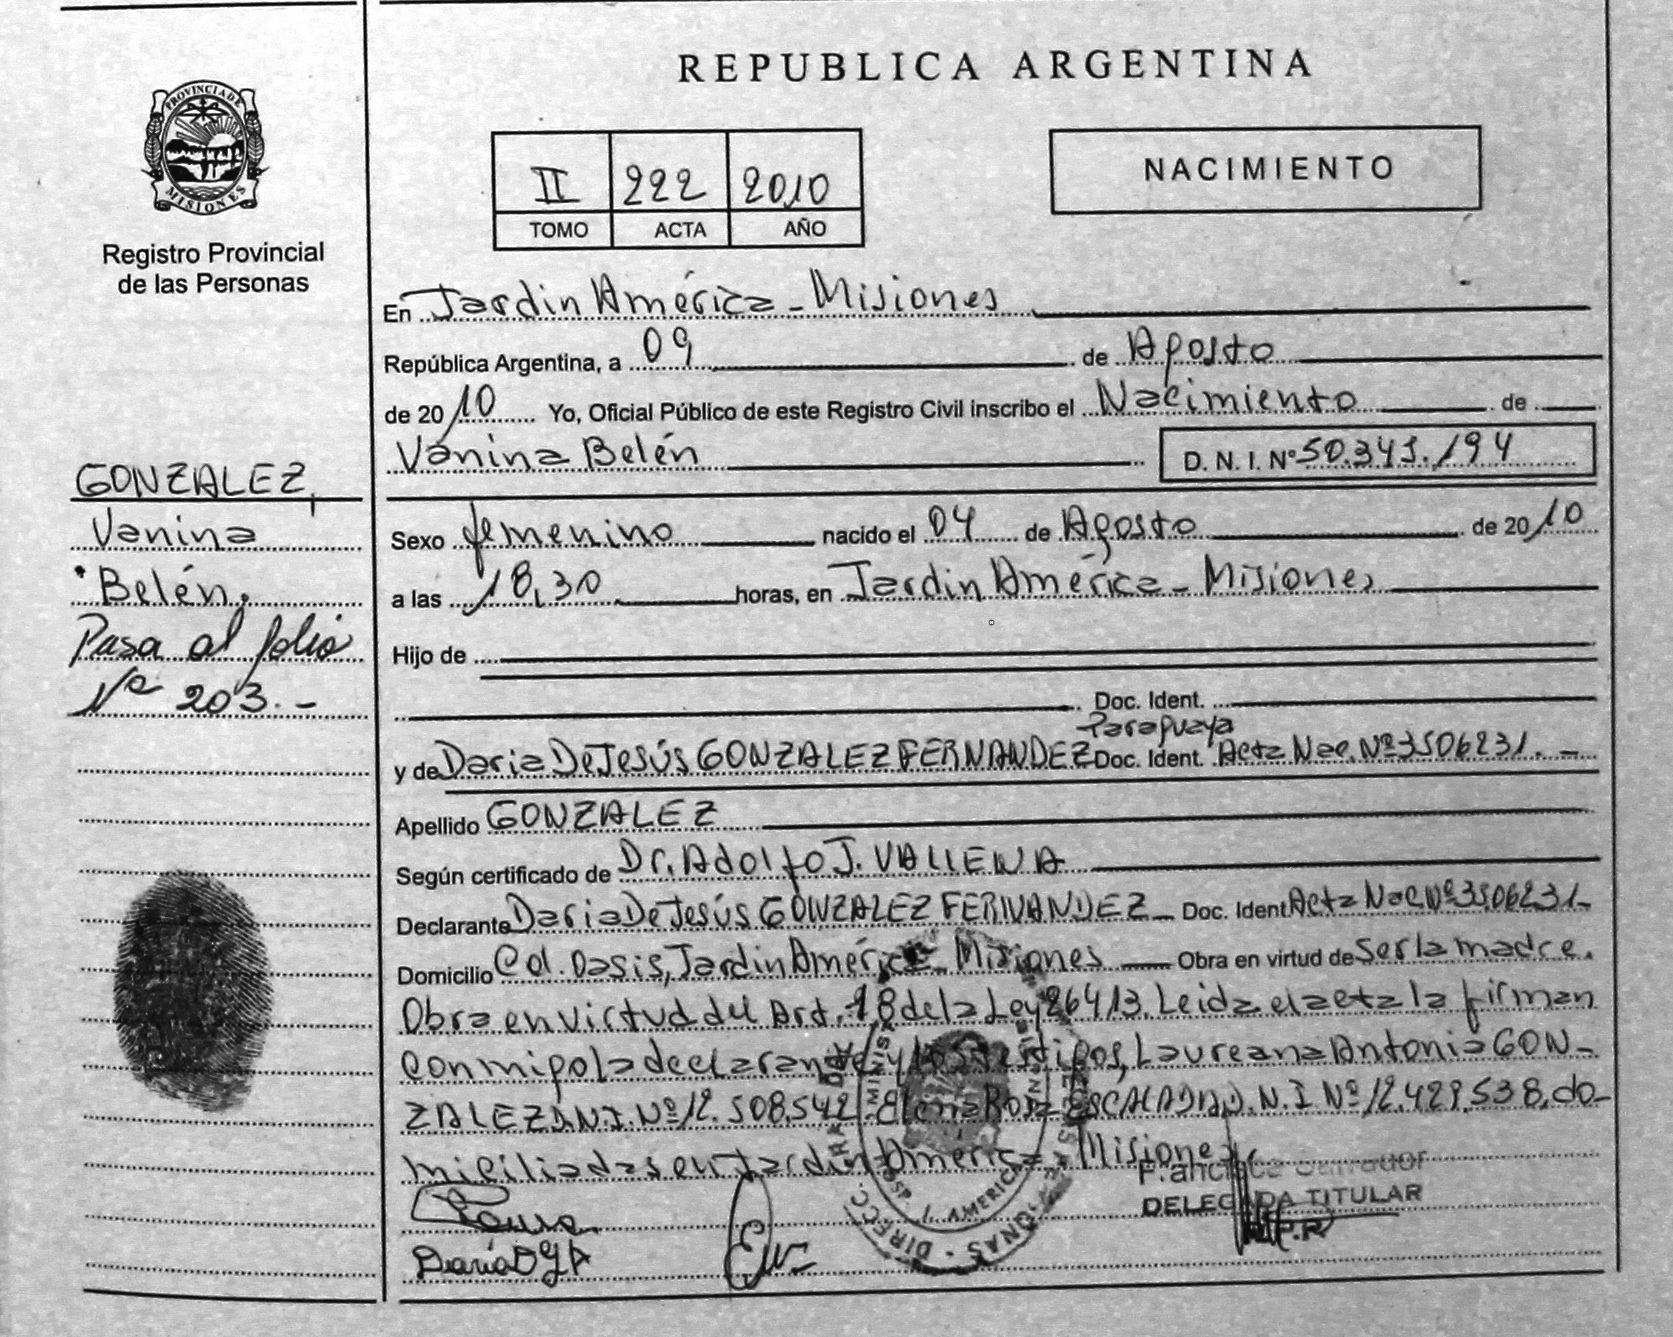 REPUBLICA ARGENTINA
PROVINCIA DE
MISIONES
Registro Provincial
de las Personas
II 222 2010
TOMO ACTA AÑO
NACIMIENTO
En Jardin América - Misiones
República Argentina, a 09 de Agosto
de 2010 Yo, Oficial Público de este Registro Civil inscribo el Nacimiento de
Vanina Belén D. N. I. Nº 50.341.194
GONZALEZ,
Vanina
Belén.
Pasa al folio
Nº 203.-
Sexo femenino nacido el 04 de Agosto de 2010
a las 18,30 horas, en Jardin América - Misiones
Hijo de
Doc. Ident.
Paraguaya
y de Daria De Jesús GONZALEZ FERNANDEZ Doc. Ident. Acta Nac. Nº 3506231. -
Apellido GONZALEZ
Según certificado de Dr. Adolfo J. VALLENA
Declarante Daria De Jesús GONZALEZ FERNANDEZ - Doc. Ident Acta Nac Nº 3506231-
Domicilio Col. Oasis, Jardin América - Misiones Obra en virtud de Ser la madre.
Obra en virtud del Art. 18 de la Ley 26413. Leida el acta la firman
conmigo la declarante y los testigos, Laureana Antonia GON-
ZALEZ D.N.I. Nº 12.508.542 Elena Rosa ESCALADA D.N.I Nº 12.429.538, do-
miciliadas en Jardin América, Misiones
DELEGADA TITULAR
R.P.P.